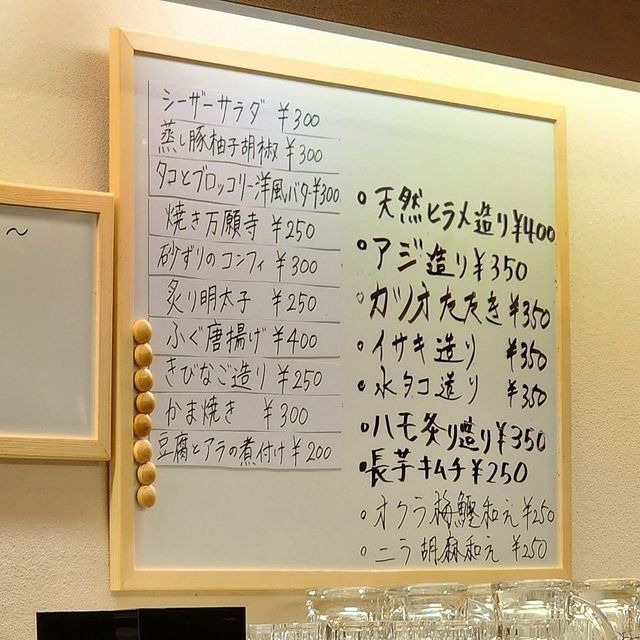 シーザーサラダ ¥300
蒸し豚柚子胡椒 ¥300
タコとブロッコリー洋風バター¥300
焼き万願寺 ¥250
砂ずりのコンフィ ¥300
炙り明太子 ¥250
ふぐ唐揚げ ¥400
きびなご造り ¥250
かま焼き ¥300
豆腐とアラの煮付け ¥200
天然ヒラメ造り¥400
アジ造り¥350
カツオたたき¥350
イサキ造り ¥350
水タコ造り ¥350
ハモ炙り造り¥350
長芋キムチ¥250
オクラ梅鰹和え ¥250
ニラ胡麻和え ¥250
〜